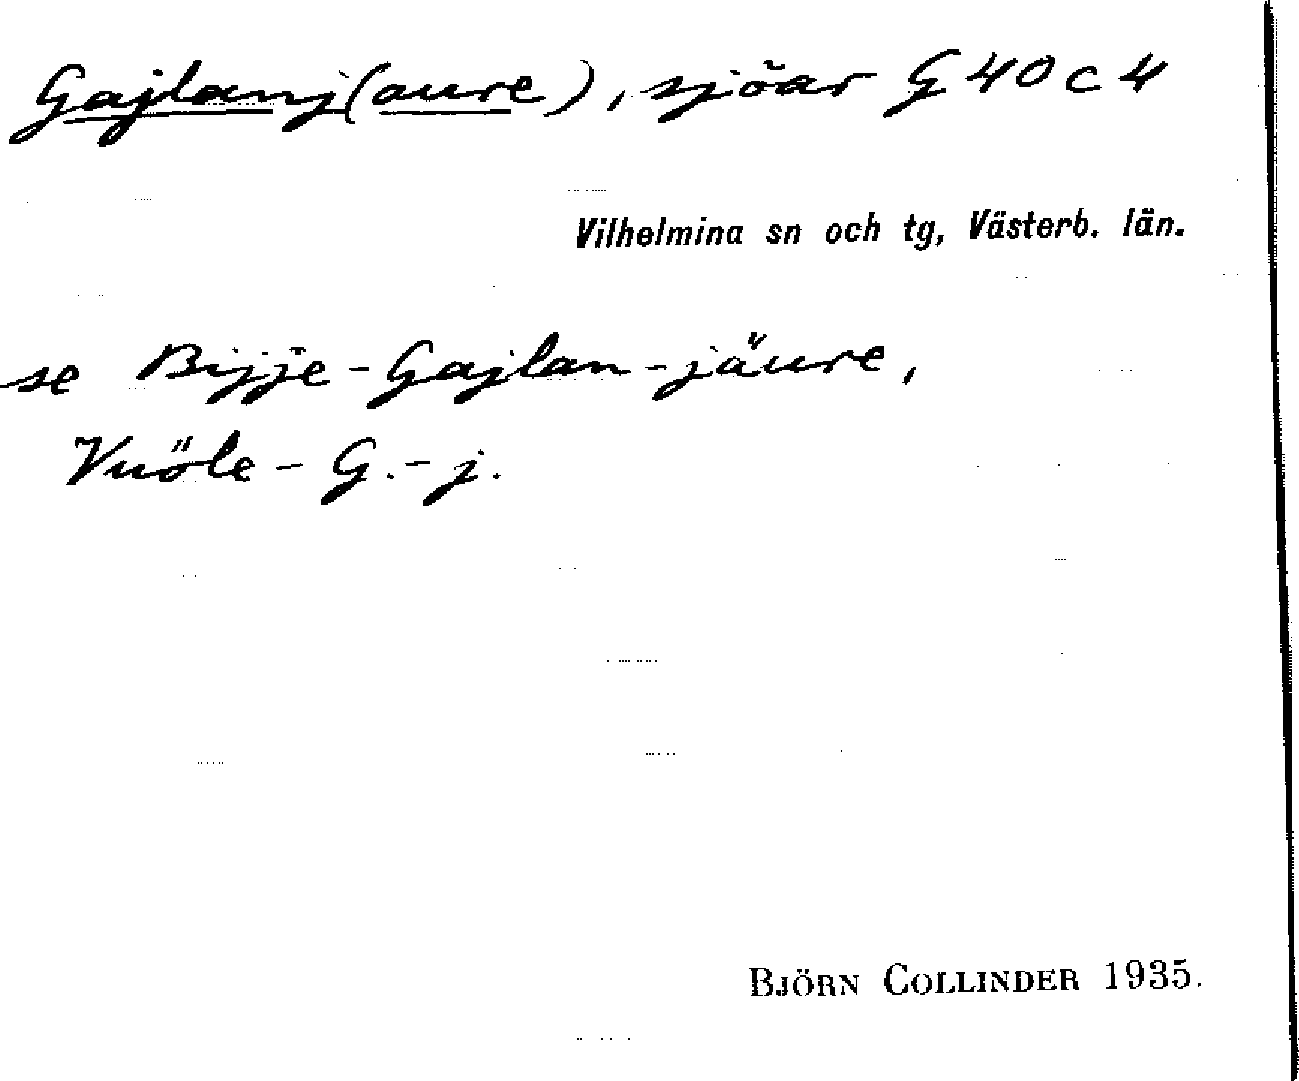 Gajlanj(aure), sjöar G 40 c 4
Vilhelmina sn och tg, Västerb. län.
se Bijje-Gajlan-jäure,
Vuöle-G.-j.
BJÖRN COLLINDER 1935.